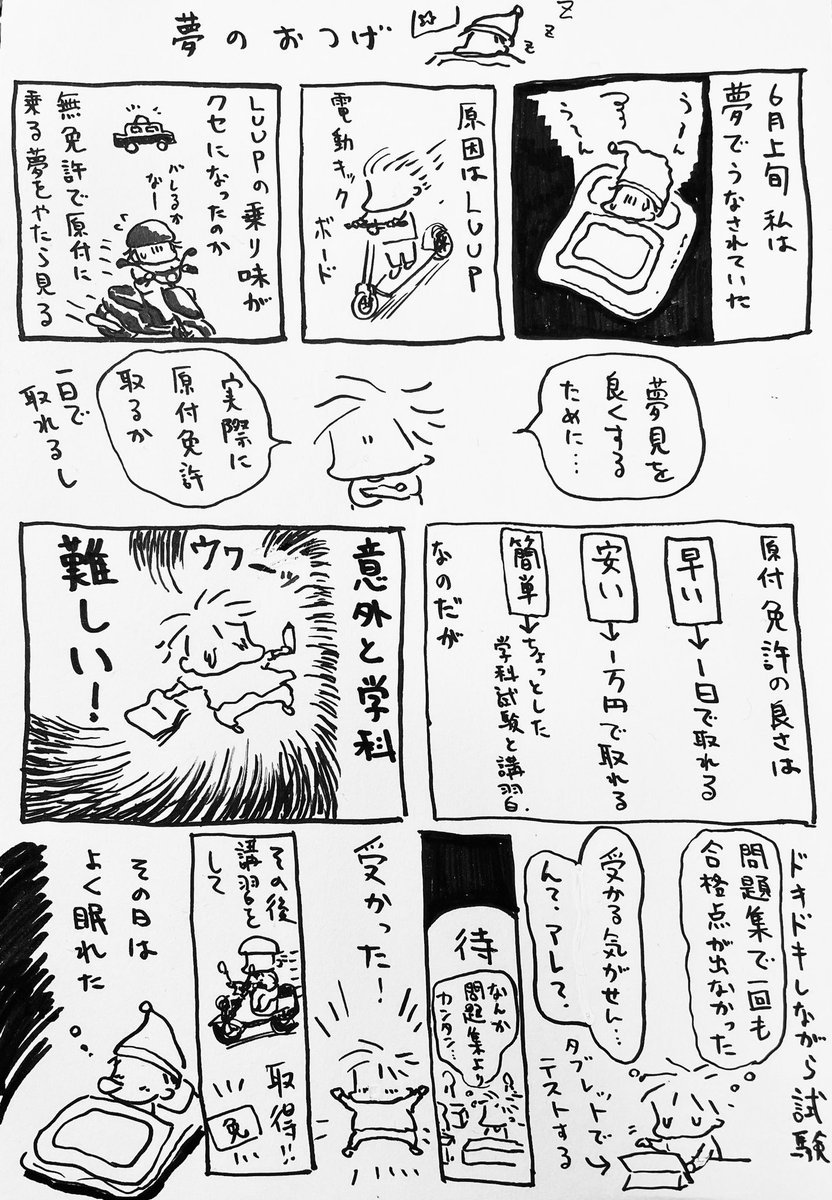 夢のおつげ
Z
z
z
6月上旬 私は
夢でうなされていた
う〜ん
う〜ん
原因はLUUP
電動キック
ボード
LUUPの乗り味が
クセになったのか
無免許で原付に
乗る夢をやたら見る
バレるか
なー
夢見を
良くする
ために…
実際に
原付免許
取るか
一日で
取れるし
原付免許の良さは
早い→1日で取れる
安い→一万円で取れる
簡単→ちょっとした
学科試験と講習.
なのだが
意外と学科
難しい!
ウワーッ
ドキドキしながら試験
問題集で一回も
合格点が出なかった
受かる気がせん…
んで、アレで、
タブレットで
テストする
待
なんか
問題集より
カンタン…
受かった!
その後
講習を
して
取得!!
免
その日は
よく眠れた